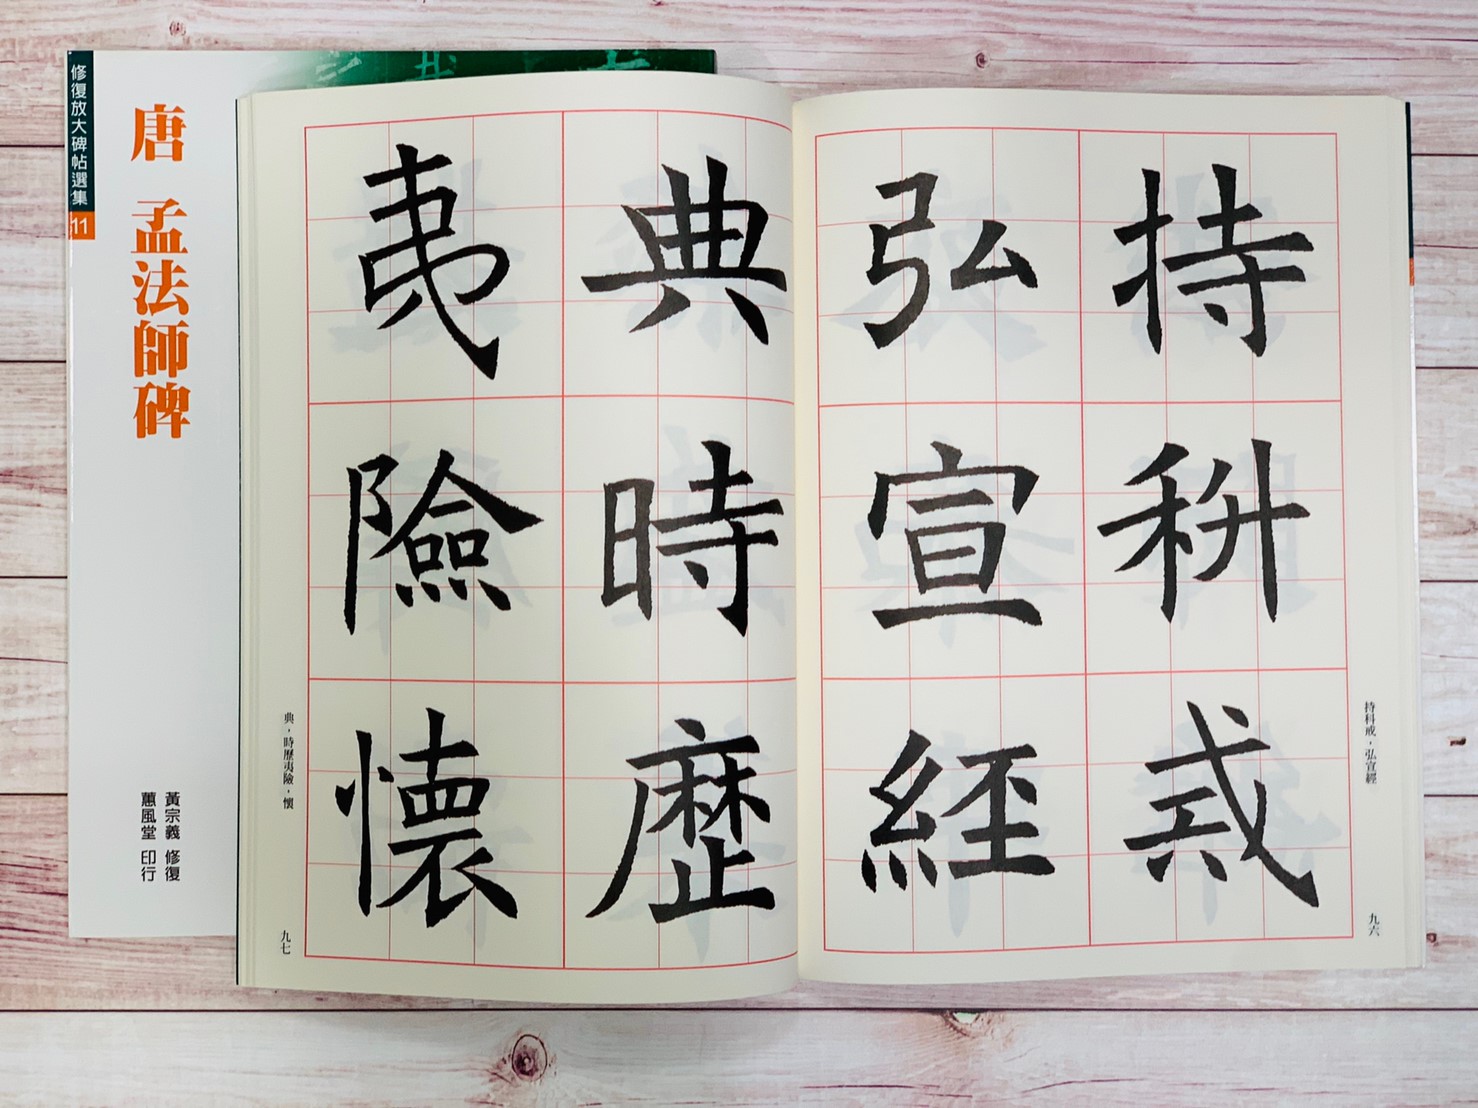 修復放大碑帖選集 11
唐 孟法師碑
黃宗義 修復
蕙風堂 印行
持科戒
弘宣經
持科戒・弘宣經
九六
典時歷
夷險懷
典・時歷夷險・懷
九七